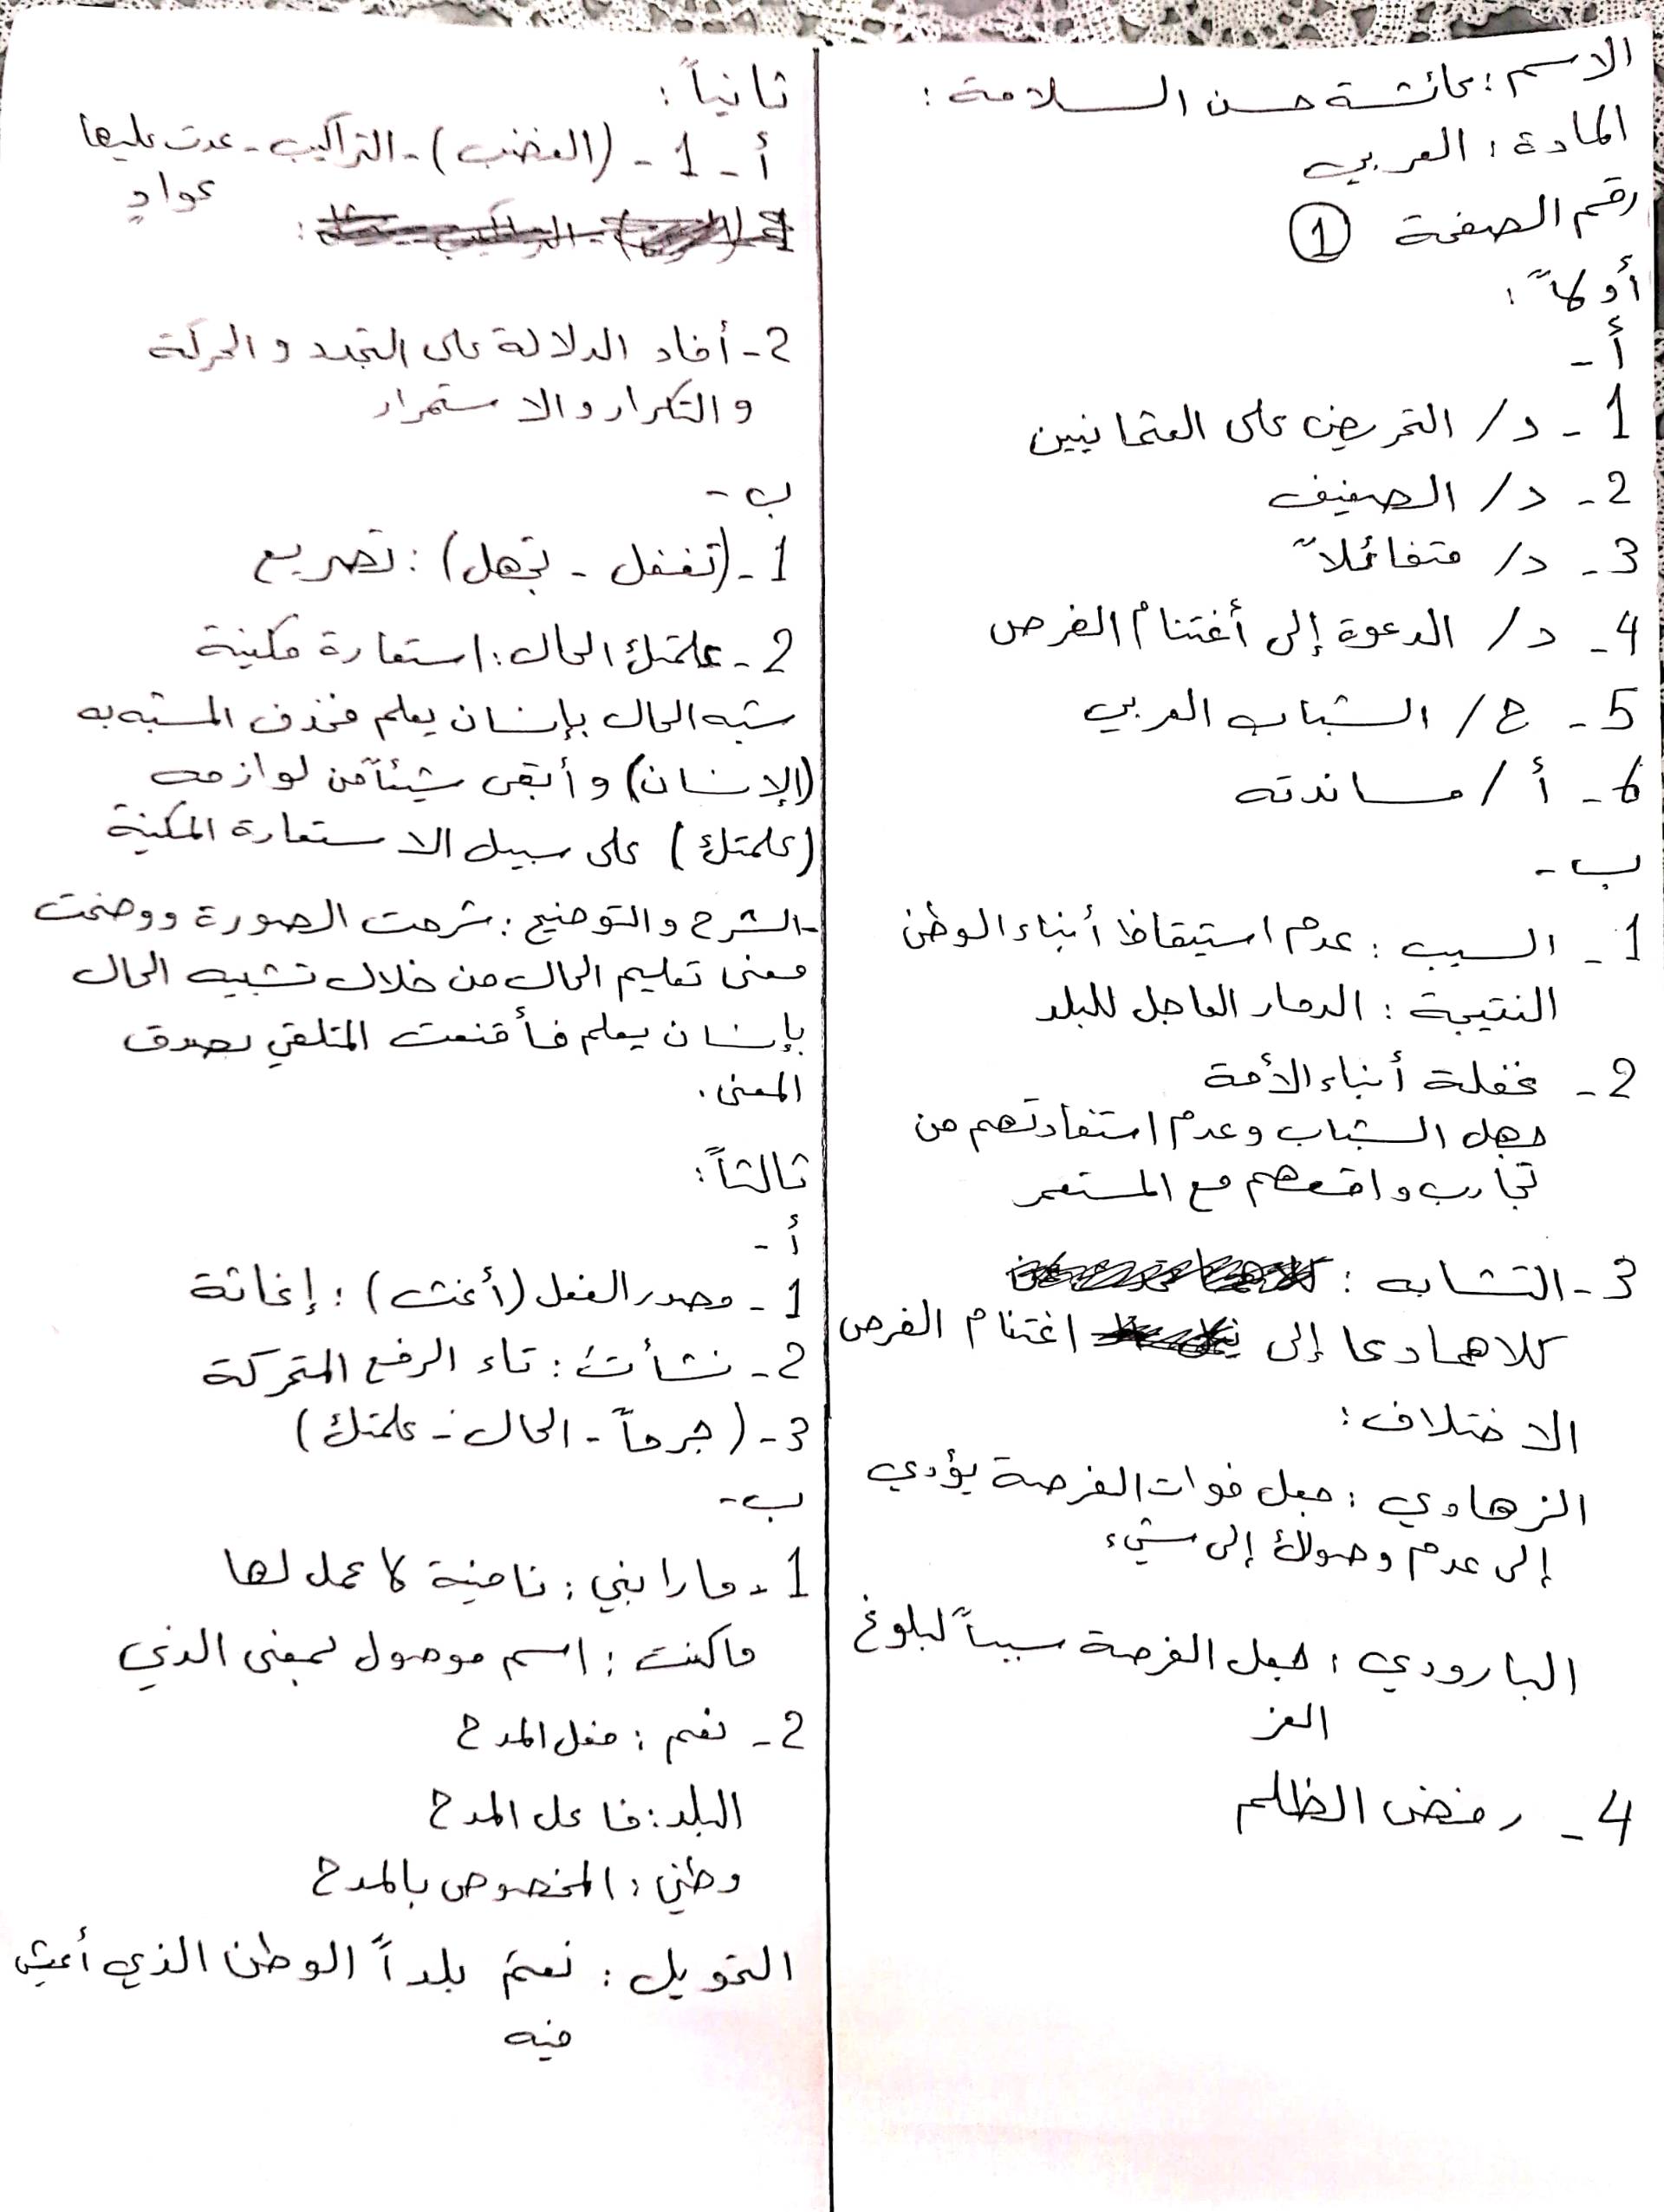 الاسم : عائشة حسن السلامة :
المادة : العربي
رقم الصفحة 1
أولاً :
أ -
1 - د/ التحريض على العثمانيين
2 - د/ الصفيف
3 - د/ متفائلاً
4 - د/ الدعوة إلى أغتنام الفرص
5 - ج/ الشباب العربي
6 - أ / مساندته
ب -
1 - السبب : عدم استيقاظ أبناء الوطن
النتيجة : الدمار العاجل للبلد
2 - غفلة أبناء الأمة
جهل الشباب وعدم استفادتهم من
تجارب واقعهم مع المستعمر
3 - التشابه :
كلاهما دعا إلى اغتنام الفرص
الاختلاف :
الزهاوي : جعل فوات الفرصة يؤدي
إلى عدم وصولك إلى شيء
البارودي : جعل الفرصة سبباً لبلوغ
العز
4 - رفض الظلم
ثانياً :
أ - 1 - (الغضب) - التراكيب - عدت عليها
عوادٍ
2 - أفاد الدلالة على التجدد والحركة
والتكرار والاستمرار
ب -
1 - (تغفل - تجهل) : تصريع
2 - علمتك الحال : استعارة مكنية
شبه الحال بإنسان يعلم فحذف المشبه به
(الإنسان) وأبقى شيئاً من لوازمه
(علمتك) على سبيل الاستعارة المكنية
- الشرح والتوضيح : شرحت الصورة ووضحت
معنى تعليم الحال من خلال تشبيه الحال
بإنسان يعلم فأقنعت المتلقي بصدق
المعنى .
ثالثاً :
أ -
1 - مصدر الفعل (أغث) : إغاثة
2 - نشأت : تاء الرفع المتحركة
3 - (جرحاً - الحال - علمتك)
ب -
1 - مارابني : نافية لا عمل لها
ماكنت : اسم موصول بمعنى الذي
2 - نعم : فعل المدح
البلد : فاعل المدح
وطني : المخصوص بالمدح
التحويل : نعمَ بلداً الوطن الذي أعيش
فيه